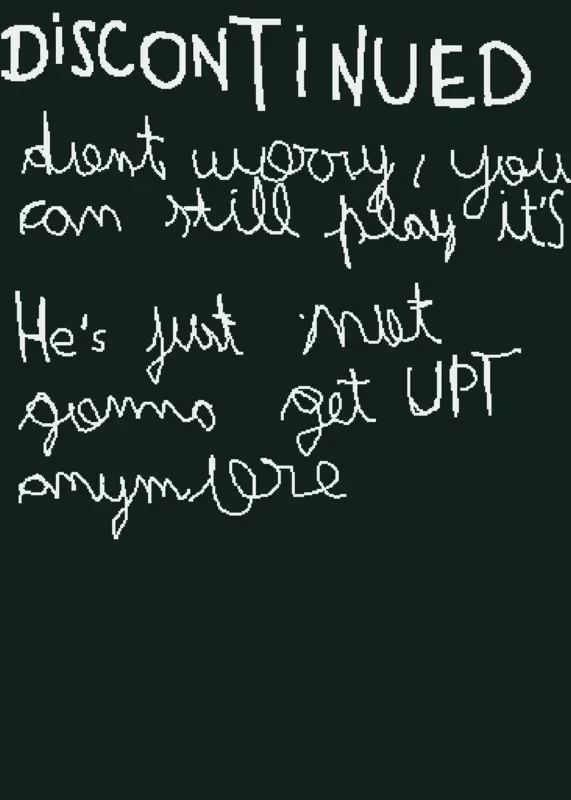 DiSCONTiNUED
dont worry, you
can still play it'S
He's just not
gonna get UPT
anymore